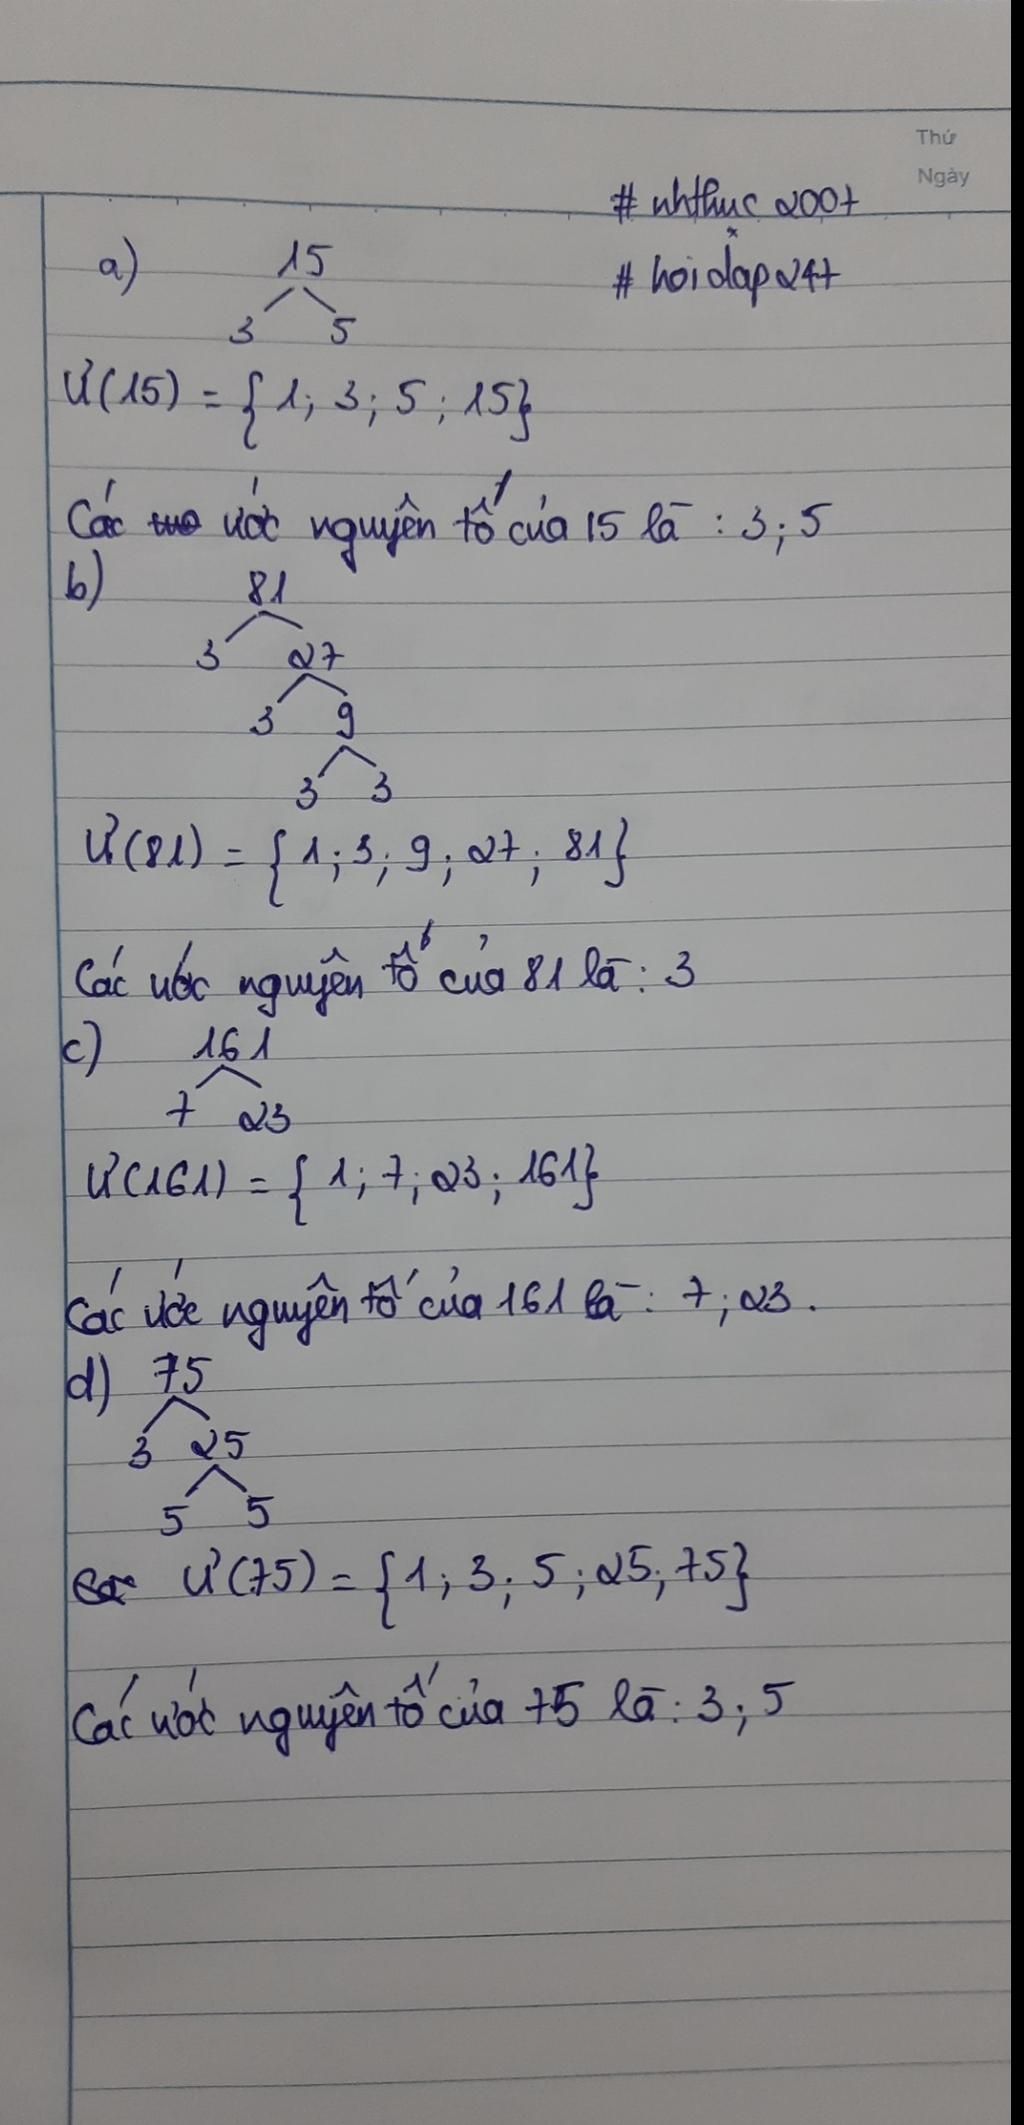 Thứ
Ngày
# nhthuc 2007
# hoidap247
a) 15
3 5
Ư(15) = {1; 3; 5; 15}
Các ước nguyên tố của 15 là : 3; 5
b) 81
3 27
3 9
3 3
Ư(81) = {1; 3; 9; 27; 81}
Các ước nguyên tố của 81 là : 3
c) 161
7 23
Ư(161) = {1; 7; 23; 161}
Các ước nguyên tố của 161 là : 7; 23.
d) 75
3 25
5 5
Ư(75) = {1; 3; 5; 25; 75}
Các ước nguyên tố của 75 là : 3; 5